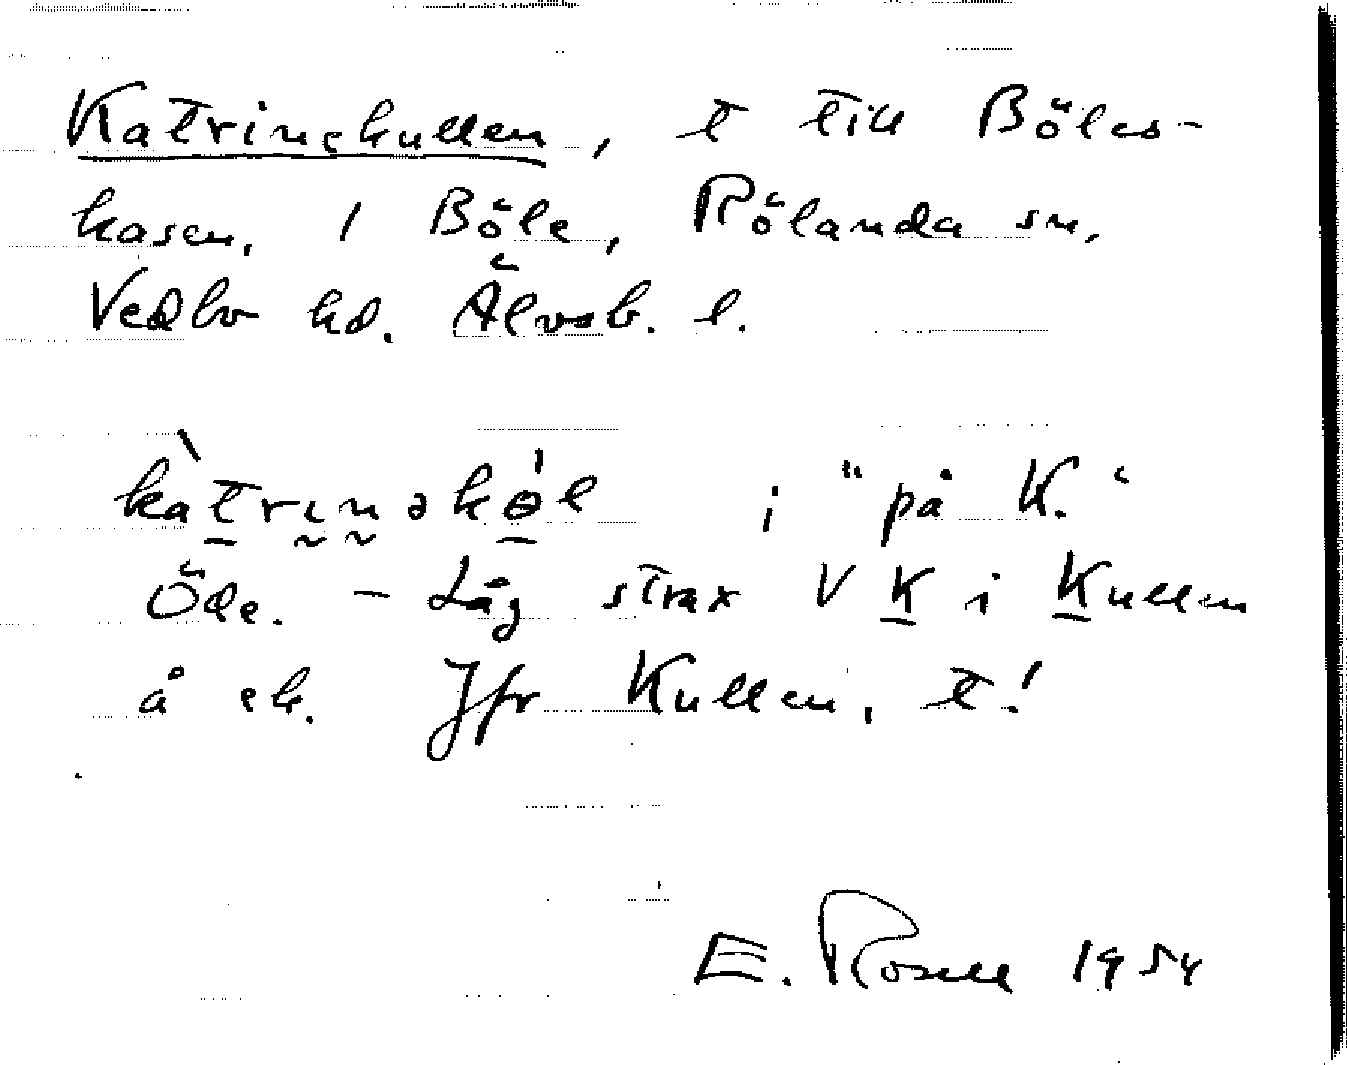 Katrinekullen, t till Böles-
kasen, 1 Böle, Rölanda sn,
Vedbo hd. Älvsb. l.
kàtrinəkøl i "på K."
Öde. - Låg strax V K i Kullen
å ek. Jfr Kullen, t!
E. Rosell 1954